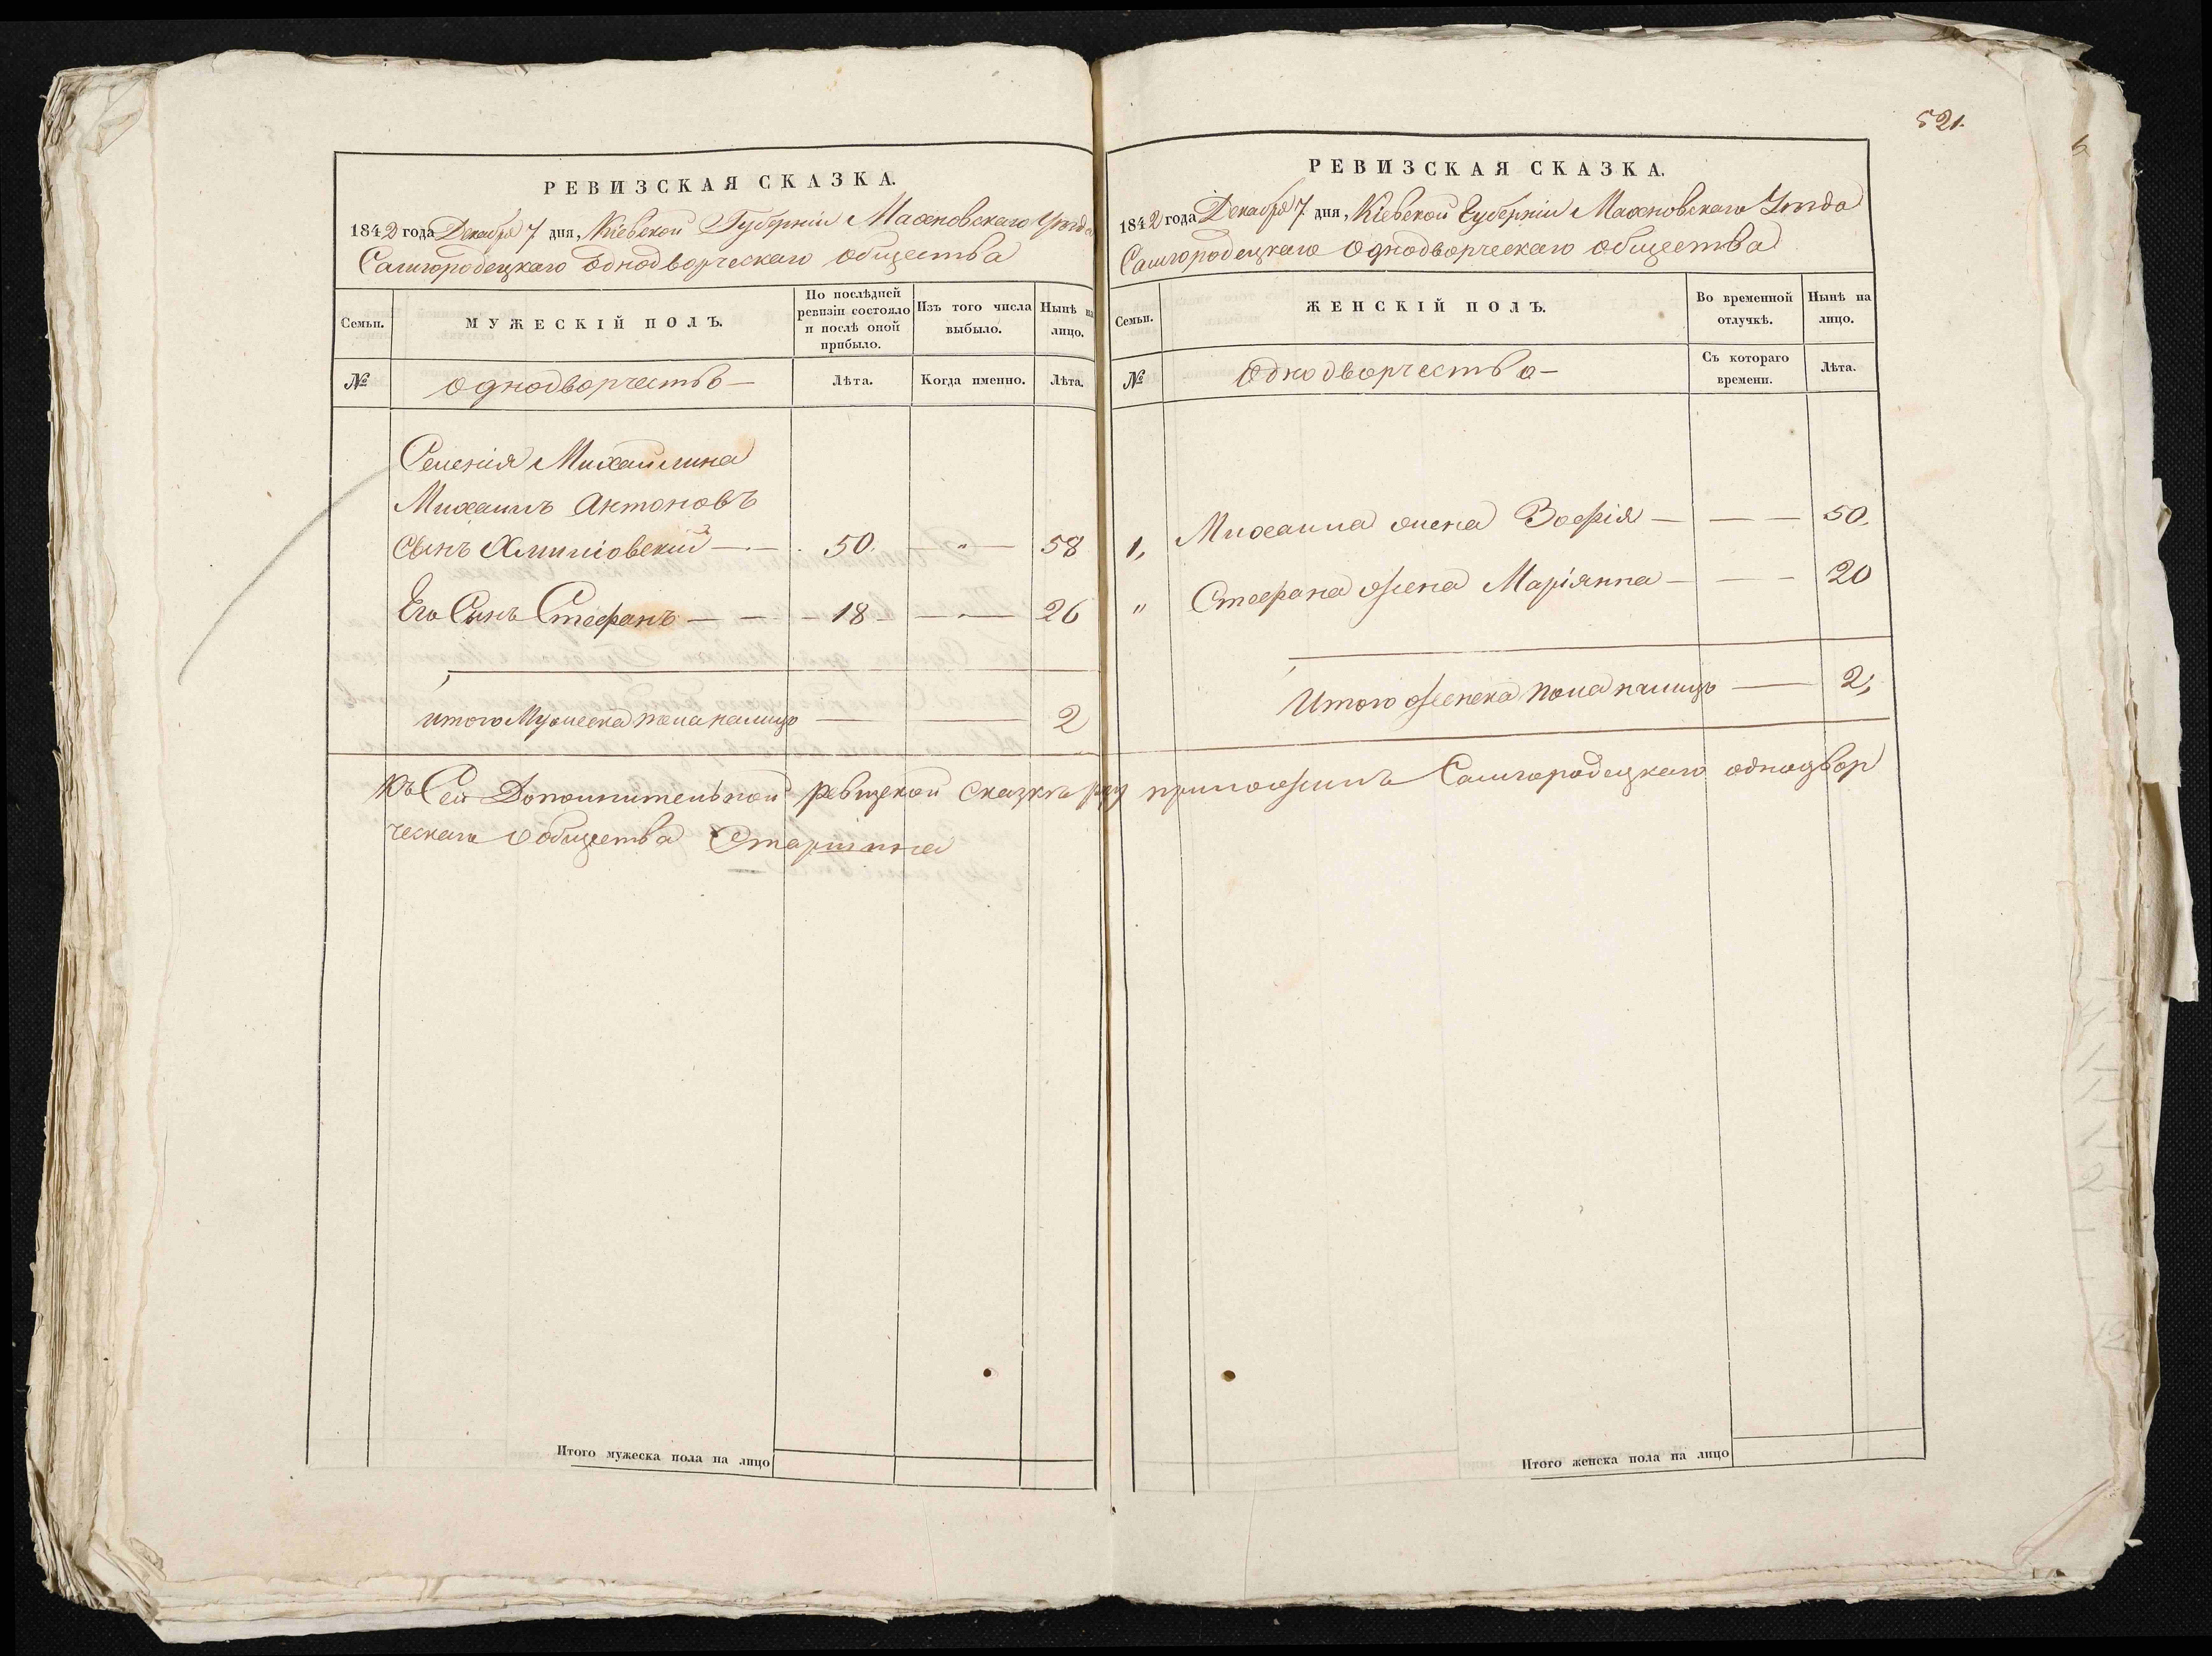 РЕВИЗСКАЯ СКАЗКА.
1842 года Декабря 7 дня, Кіевской Губерніи Махновскаго Уезда
Самгородецкаго Однодворческаго общества
Семьи.
МУЖЕСКІЙ ПОЛЪ.
По послѣдней ревизіи состояло и послѣ оной прибыло.
Изъ того числа выбыло.
Нынѣ на лицо.
№
Однодворчества—
Лѣта.
Когда именно.
Лѣта.
Селенія Михайлина
Михаилъ Антоновъ
сынъ — 50. — " — 58
Его Сынъ Стефанъ — — 18 — — 26
итого Мужеска пола налицо — 2
Къ Сей Дополнительной ревизской сказкѣ руку приложилъ Самгородецкаго однодвор
ческаго общества Старшина
521.
РЕВИЗСКАЯ СКАЗКА.
1842 года Декабря 7 дня, Кіевской Губерніи Махновскаго Уезда
Самгородецкаго Однодворческаго общества
Семьи.
ЖЕНСКІЙ ПОЛЪ.
Во временной отлучкѣ.
Нынѣ на лицо.
№
Однодворчества—
Съ котораго времени.
Лѣта.
1, Михаила жена Зофія — — — 50.
" Стефана жена Маріянна — — — 20
Итого женска пола налицо — 2,
Итого мужеска пола на лицо
Итого женска пола на лицо